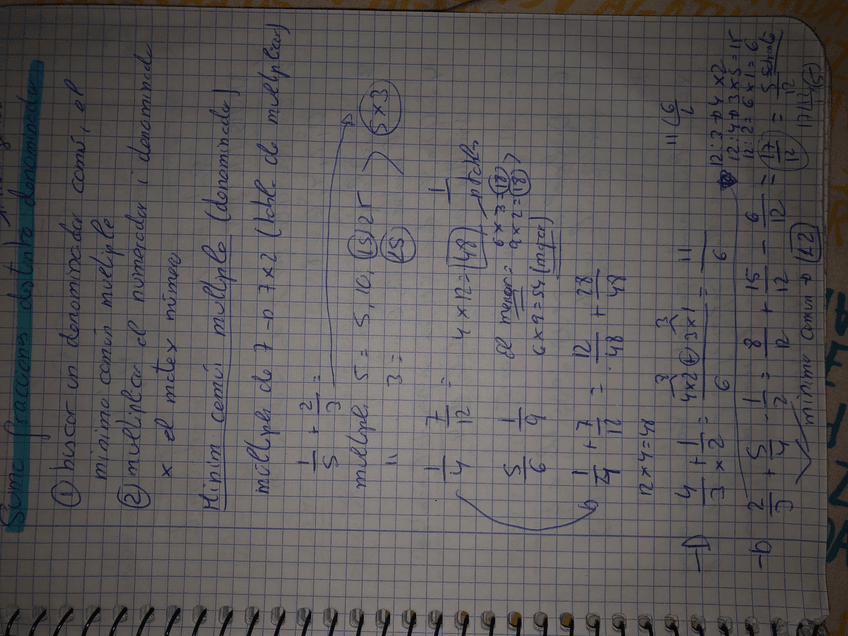 Suma fracciones distinto denominador
① buscar un denominador común, el
mínimo común multiplo
② multiplicar el numerador i denominado
x el matex número
Mínim comú multiplo (denominado)
múltiplo de 7 → 7x2 (tabla de multiplicar)
1/5 + 2/3 =
multiplo 5 = 5, 10, 15, 25 > 5x3
" 3 = 15
1/4 7/12 = 4 x 12 = 48
5/6 1/9 el menor = 6 x 3 = 18
9 x 2 = 18
6 x 9 = 54 (mayor)
1/4 + 7/12 = 12/48 + 28/48
12x4=48
→ 4/3 + 1/2 = 4x2 + 3x1 / 6 = 11/6
8 3
11 6
→ 2/3 + 5/4 - 1/2 = 8/12 + 15/12 - 6/12 = 17/12 =
mínimo comun → 12
12:3=4 x2
12:4=3x5=15
12:2=6x1=6